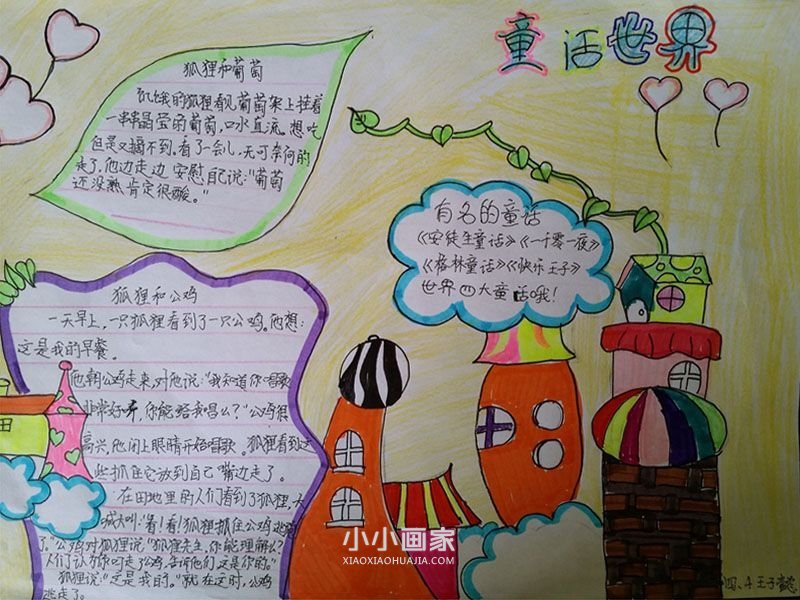 童话世界
狐狸和葡萄
饥饿的狐狸看见葡萄架上挂着
一串串晶莹的葡萄，口水直流。想吃
但是又摘不到。看了一会儿，无可奈何的
走了，他边走边安慰自己说：“葡萄
还没熟肯定很酸。”
有名的童话
《安徒生童话》《一千零一夜》
《格林童话》《快乐王子》
世界四大童话哦！
狐狸和公鸡
一天早上，一只狐狸看到了一只公鸡。他想：
这是我的早餐。
他朝公鸡走来，对他说：“我知道你唱歌
非常好听，你能给我唱么？”公鸡很
高兴，他闭上眼睛开始唱歌。狐狸看到这
些抓住它放到自己嘴边走了。
在田地里的人们看到了狐狸，大
喊大叫：“看！看！狐狸抓住公鸡逃
了。”公鸡对狐狸说：“狐狸先生，你能理解么？
人们认为你叼走了公鸡，告诉他们这是你的。”
狐狸说：“这是我的。”就在这时，公鸡
逃走了。
小小画家
XIAOXIAOHUAJIA.COM
四、4 王子